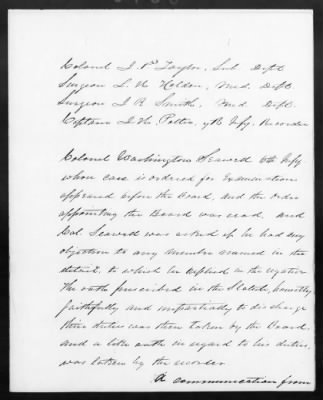 Colonel J. P. Taylor, Sub. Dept.
Surgeon L. A. Holden, Med. Dept.
Surgeon J. R. Smith, Med. Dept.
Captain J. N. Potter, 7th Infy. Recorder
Colonel Washington Seawell 6th Infy
whose case is ordered for examination
appeared before the Board, and the order
appointing the Board was read, and
Col. Seawell was asked if he had any
objection to any member named in the
detail, to which he replied in the negative.
The oath prescribed in the Statute, honestly
faithfully and impartially to discharge
their duties was then taken by the Board
and a like oath in regard to his duties,
was taken by the recorder.
A communication from